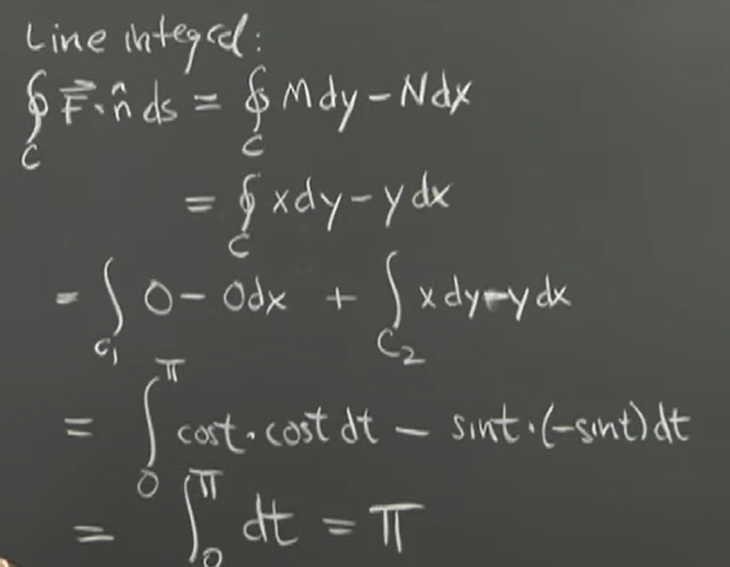 Line integral:
∮_C F⃗·n̂ ds = ∮_C Mdy − Ndx
= ∮_C xdy − ydx
= ∫_{C₁} 0 − 0dx + ∫_{C₂} xdy − ydx
= ∫_0^π cost·cost dt − sint·(−sint)dt
= ∫_0^π dt = π